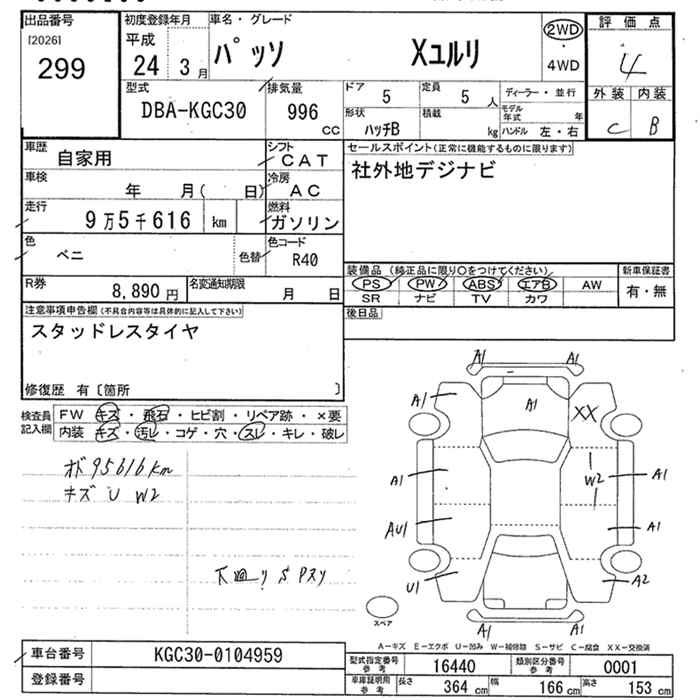 出品番号
[2026]
299
初度登録年月
平成
24 3月
車名・グレード
パッソ Xユルリ
2WD
・
4WD
評価点
4
外装 内装
C B
型式
DBA-KGC30
排気量
996
CC
ドア
5
定員
5 人
形状
ハッチB
積載
kg
ディーラー・並行
モデル年式 年
ハンドル 左・右
車歴
自家用
シフト
CAT
車検
年 月( 日)
冷房
AC
走行
9万5千616 km
燃料
ガソリン
色
ベニ
色替
色コード
R40
R券
8,890 円
名変通知期限
月 日
セールスポイント(正常に機能するものに限ります)
社外地デジナビ
装備品(純正品に限り〇をつけてください)
PS PW ABS エアB AW
SR ナビ TV カワ
新車保証書
有・無
後日品
注意事項申告欄(不具合内容等は具体的に記入して下さい)
スタッドレスタイヤ
修復歴 有〔箇所 〕
検査員記入欄
FW キズ・飛石・ヒビ割・リペア跡・×要
内装 キズ・汚レ・コゲ・穴・スレ・キレ・破レ
オド95616km
キズ U W2
下廻り S Pスリ
A1 A1
A1 A1 XX
A1 W2 A1
AU1 A1
U1 A2
A1 A1
スペア
A-キズ E-エクボ U-凹み W-補修跡 S-サビ C-腐食 XX-交換済
車台番号
KGC30-0104959
登録番号
型式指定番号 参考
16440
類別区分番号 参考
0001
車庫証明用 参考
長さ 364 cm 幅 166 cm 高さ 153 cm